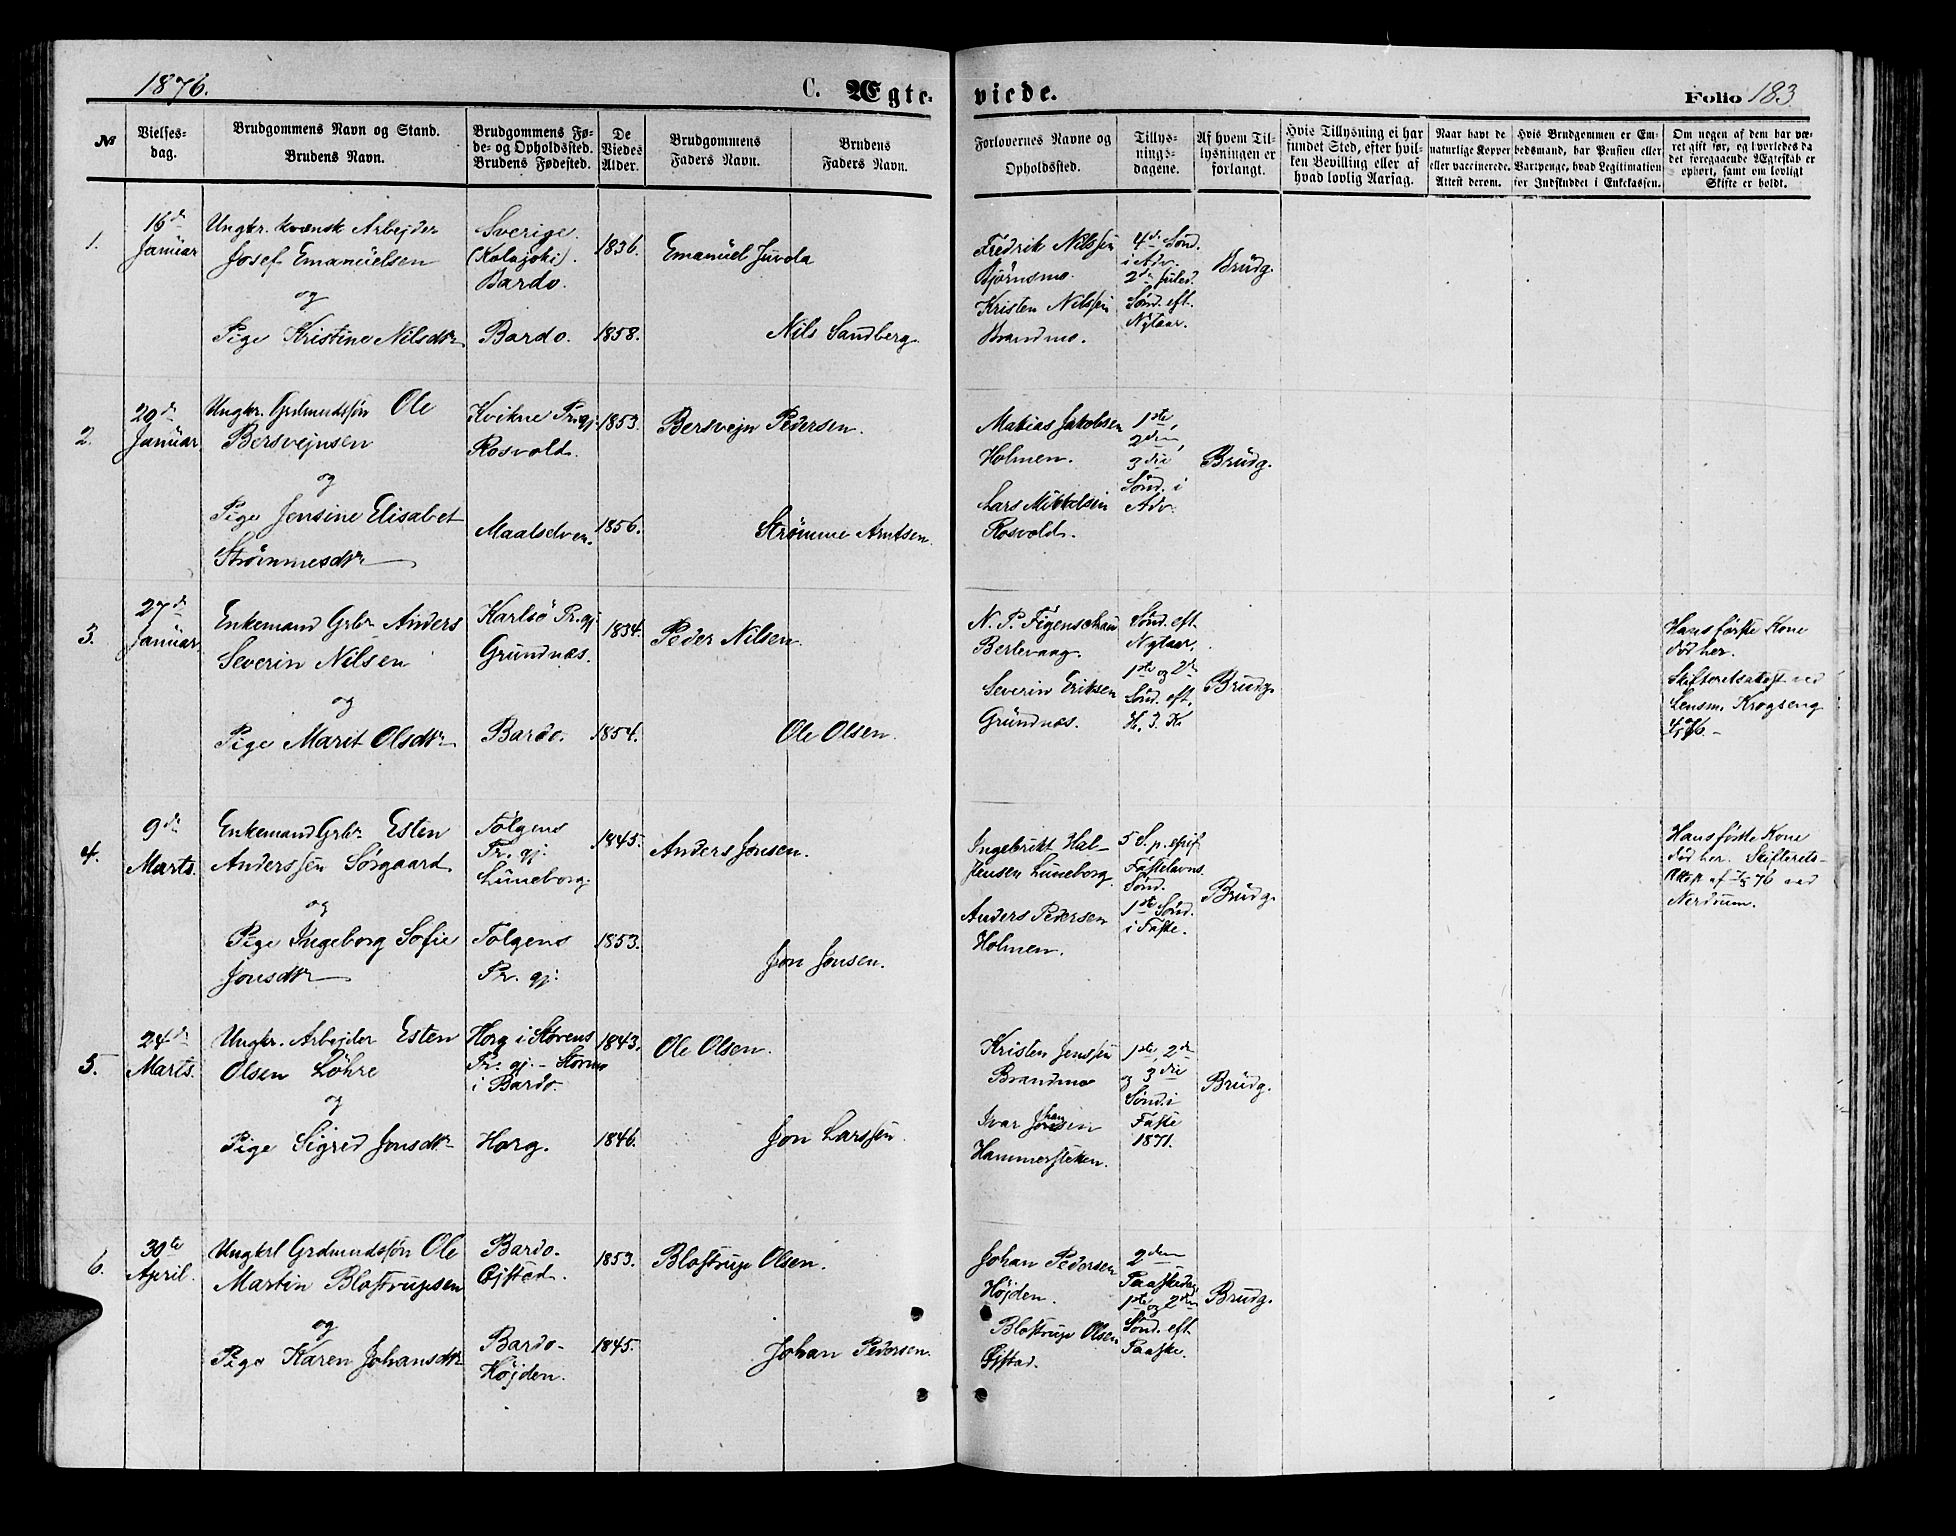 1876.
C. Ægteviede.
Folio 183
№
Vielses-
dag.
Brudgommens Navn og Stand.
Brudens Navn.
Brudgommens Fø-
de- og Opholdssted.
Brudens Fødested.
De
Viedes
Alder.
Brudgommens
Faders Navn.
Brudens
Faders Navn.
Forlovernes Navne og
Opholdssted.
Tillys-
nings-
dagene.
Af hvem Til-
lysningen er
forlangt.
Hvis Tillysning ei har
fundet Sted, efter hvil-
ken Bevilling eller af
hvad lovlig Aarsag.
Naar havt de
naturlige Kopper
eller vaccinerede.
Attest derom.
Hvis Brudgommen er Em-
bedsmand, har Pension eller
Vartpenge, hvad Legitimation
for Indskuddet i Enkekassen.
Om nogen af dem har væ-
ret gift før, og hvorledes da
det foregaaende Ægteskab er
ophørt, samt om lovligt
Skifte er holdt.
1.
16de
Januar
Ungkr. kvænsk Arbejder
Josef Emanuelsen
og
Pige Kristine Nilsdtr
Sverige.
(Kalajoki).
Bardo.
Bardo.
1836.
1858.
Emanuel Juvola
Nils Sandberg
Fredrik Nilssen
Bjørnsmo.
Kristen Nilssen
Brandmo.
4de Sønd.
i Adv.
2den Juled.
Sønd. eft.
Nytaar.
Brudg.
2.
29de
Januar
Ungkr. Grdmundssøn Ole
Bersvejnsen
og
Pige Jensine Elisabet
Strømmesdtr
Kvikne Pr.gj.
Rosvold.
Maalselven.
1853.
1856.
Bersvejn Pedersen.
Strømme Arntsen.
Matias Jakobsen
Holmen.
Lars Mikkelsen
Rosvold.
1ste,
2den,
3die
Sønd. i
Adv.
Brudg.
3.
27de
Januar
Enkemand Grbr Anders
Severin Nilsen
og
Pige Marit Olsdtr
Karlsö Pr.gj.
Grundnæs.
Bardo.
1834.
1854.
Peder Nilsen.
Ole Olsen.
N. P. Figenschau
Berlevaag.
Severin Eriksen
Grundnæs.
Sønd. eft.
Nytaar.
1ste og 2den
Sønd. eft.
H. 3. K.
Brudg.
Hans første Kone
død her.
Skifteretsattest ved
Lensm. Krogseng
76.
4.
9de
Marts.
Enkemand Grbr Esten
Anderssen Sørgaard
og
Pige Ingeborg Sofie
Jonsdtr
Tolgens
Pr. gj.
Luneborg.
Tolgens
Pr. gj.
1845.
1853.
Anders Jonsen.
Jon Jonsen.
Ingebrikt Hal-
stensen Luneborg.
Anders Pedersen
Holmen.
5 S. p. epif.
Fastelavns
Sønd.
1ste Sønd.
i Faste.
Brudg.
Hans første Kone
død her. Skifterets-
Attest af 76 ved
Nerdrum.
5.
24de
Marts.
Ungkr. Arbejder Esten
Olsen Løhre
og
Pige Sigrid Jonsdtr
Horg i Størens
Pr. gj. - Stormo
i Bardo.
Horg.
1843.
1846.
Ole Olsen.
Jon Larssen.
Kristen Jenssen
Brandmo
Ivar Johansen
Hammersletten.
1ste, 2den
og 3die
Sønd. i
Faste
1871.
Brudg.
6.
30te
April.
Ungkrl Grdmundssøn Ole
Martin Blostrupsen
og
Pige Karen Johansdtr
Bardo.
Øjstad.
Bardo.
Højden.
1853.
1845.
Blostrup Olsen.
Johan Pedersen.
Johan Pedersen
Højden.
Blostrup Olsen
Øjstad.
2den
Paaskedag
1ste og 2den
Sønd. eft.
Paaske.
Brudg.